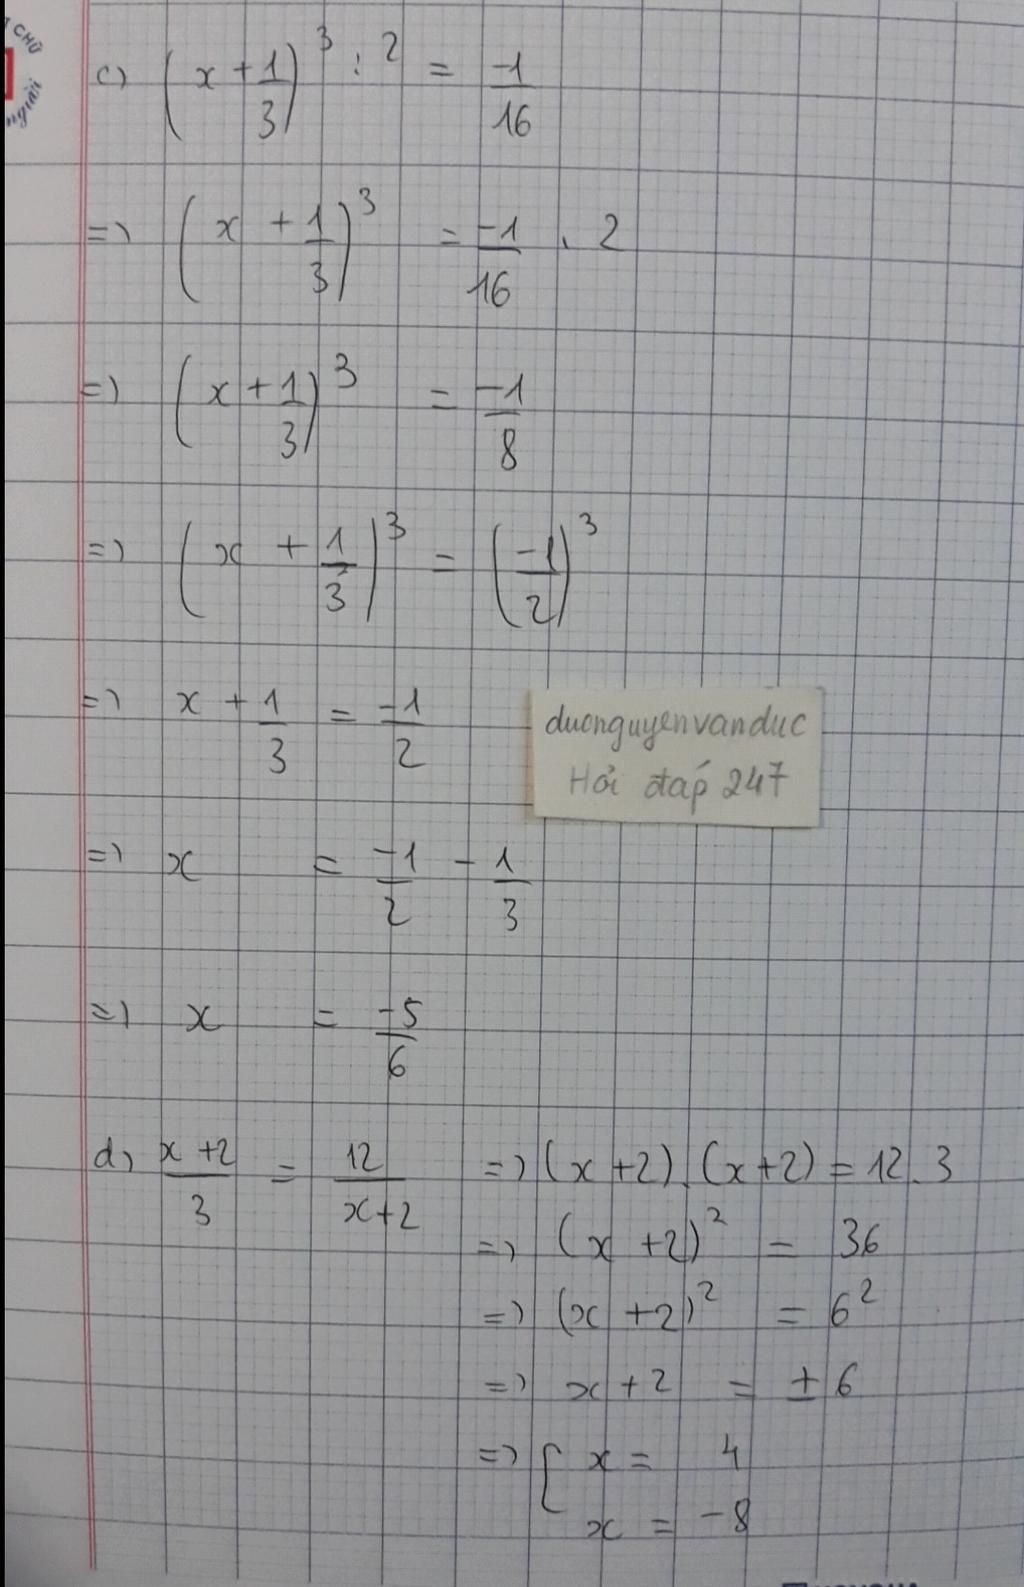 CHỮ
c) (x + 1/3)³ : 2 = -1/16
=> (x + 1/3)³ = -1/16 . 2
=> (x + 1/3)³ = -1/8
=> (x + 1/3)³ = (-1/2)³
=> x + 1/3 = -1/2
duonguyenvanduc
Hỏi đáp 247
=> x = -1/2 - 1/3
=> x = -5/6
d) x+2/3 = 12/x+2 => (x+2).(x+2) = 12.3
=> (x+2)² = 36
=> (x+2)² = 6²
=> x+2 = ±6
=> [ x = 4
x = -8